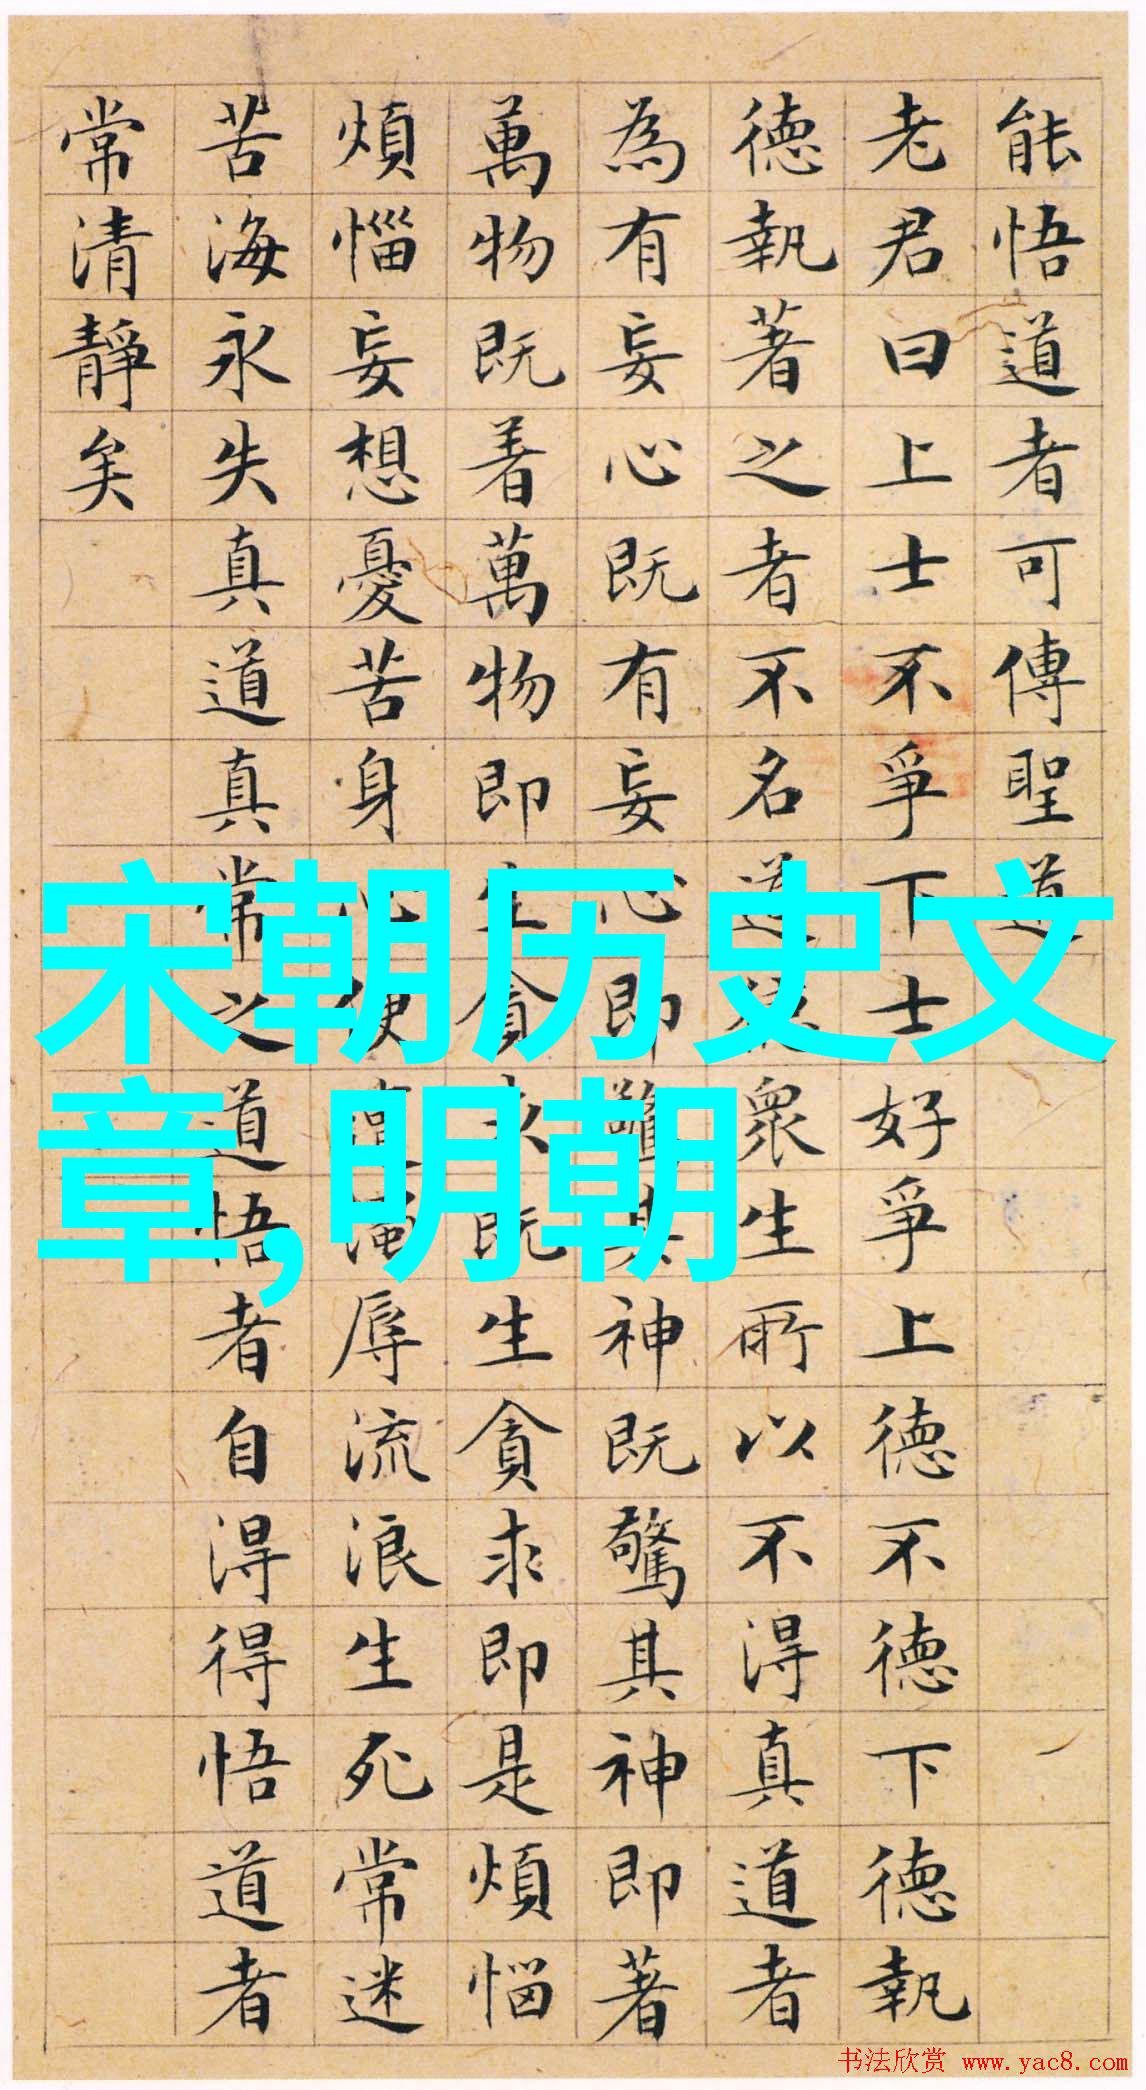 能悟道者可傳聖道
老君曰上士不爭下士好爭上德不德下德執
德執著之者不名道德眾生所以不得真道者
為有妄心既有妄心即驚其神既驚其神即著
萬物既着萬物即生貪求既生貪求即是煩惱
煩惱妄想憂苦身心便遭濁辱流浪生死常迷
苦海永失真道真常之道悟者自得得悟道者
常清靜矣
宋朝历史文
章,明朝
书法欣赏 www.yac8.com